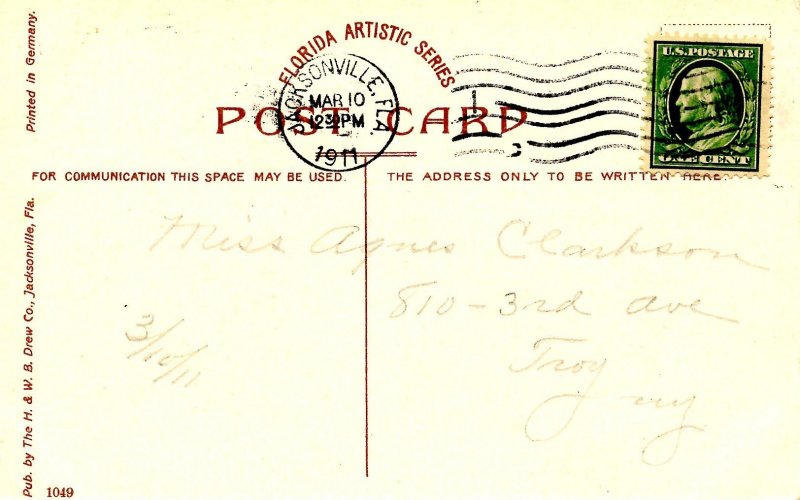 FLORIDA ARTISTIC SERIES
POST CARD
JACKSONVILLE, FLA.
MAR 10
12 30 PM
1911
U.S. POSTAGE
ONE CENT
FOR COMMUNICATION THIS SPACE MAY BE USED.
THE ADDRESS ONLY TO BE WRITTEN HERE.
Miss Agnes Clarkson
810-3rd ave
Troy
ny
3/10/11
Printed in Germany.
Pub. by The H. & W. B. Drew Co., Jacksonville, Fla.
1049